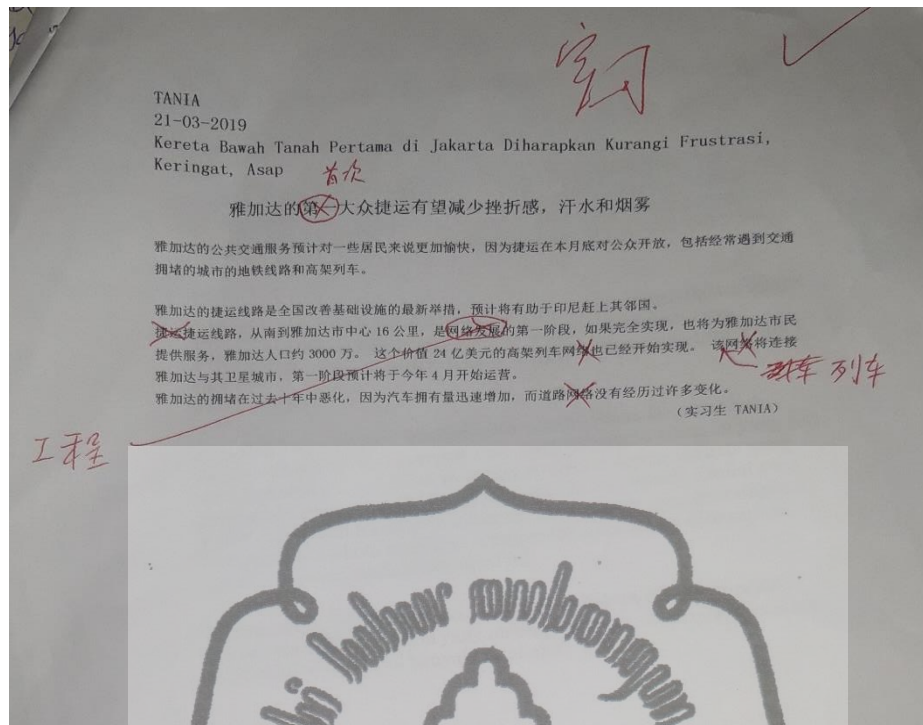 实习
TANIA
21-03-2019
Kereta Bawah Tanah Pertama di Jakarta Diharapkan Kurangi Frustrasi,
Keringat, Asap
首次
雅加达的第一大众捷运有望减少挫折感，汗水和烟雾
雅加达的公共交通服务预计对一些居民来说更加愉快，因为捷运在本月底对公众开放，包括经常遇到交通
拥堵的城市的地铁线路和高架列车。
雅加达的捷运线路是全国改善基础设施的最新举措，预计将有助于印尼赶上其邻国。
捷运捷运线路，从南到雅加达市中心 16 公里，是网络发展的第一阶段，如果完全实现，也将为雅加达市民
提供服务，雅加达人口约 3000 万。 这个价值 24 亿美元的高架列车网络也已经开始实现。 该网络将连接
雅加达与其卫星城市，第一阶段预计将于今年 4 月开始运营。
列车
雅加达的拥堵在过去十年中恶化，因为汽车拥有量迅速增加，而道路网络没有经历过许多变化。
（实习生 TANIA）
工程